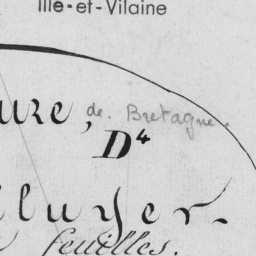 Ille-et-Vilaine
ure, de Bretagne.
D⁴
luyer.
feuilles.